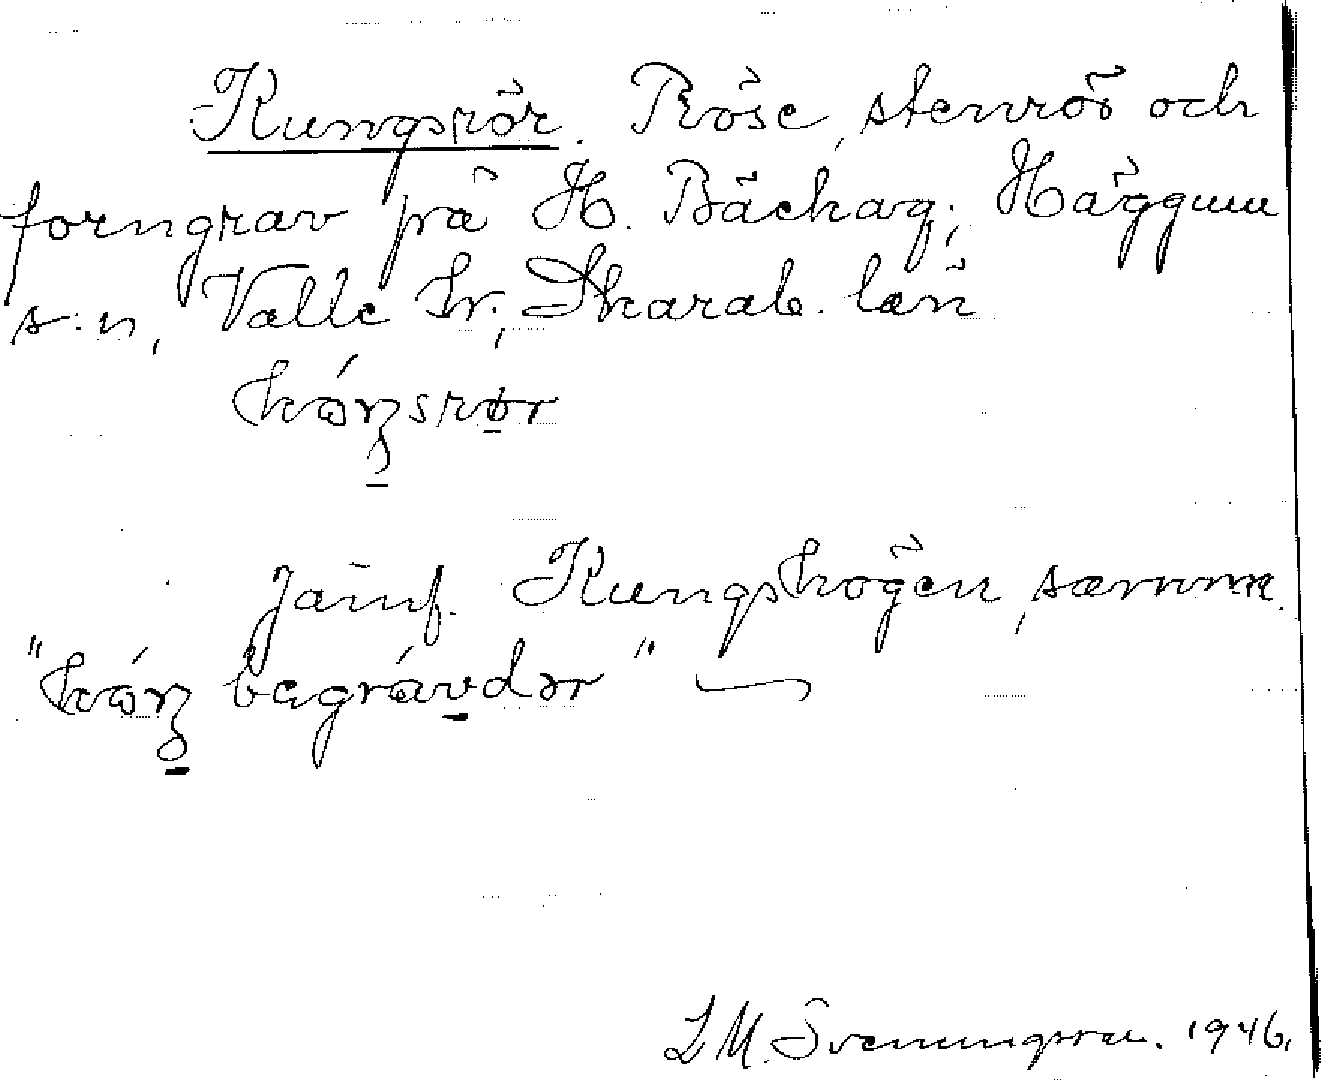 Kungsrör. Röse, stenrös och
forngrav på H. Bäckag., Häggum
s:n, Valle hr., Skarab. län
Jämf. Kungshögen, samma.
L M. Svenungsson. 1946.